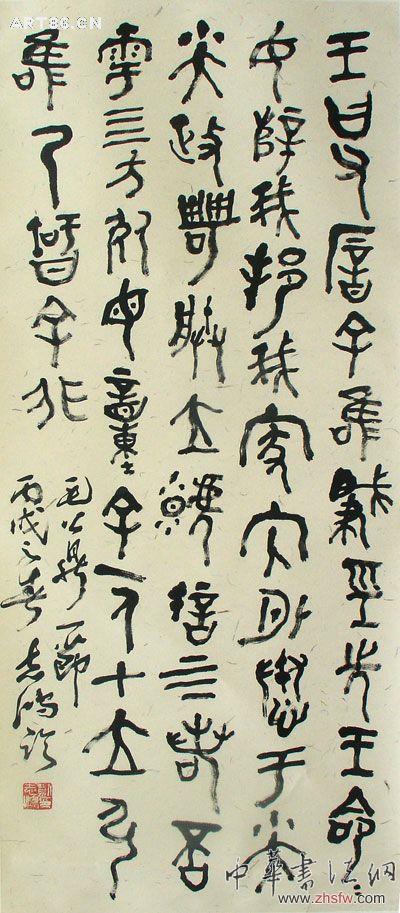 王曰父厝余唯肇巠先王命=
女辥我邦我家內外惷于小
大政甹朕立虩許上下若否
雩四方死母童余一人才立弘
唯乃智余非
毛公鼎一節
丙戌之春志鴻
ART86.CN
中華書法網
www.zhsfw.com